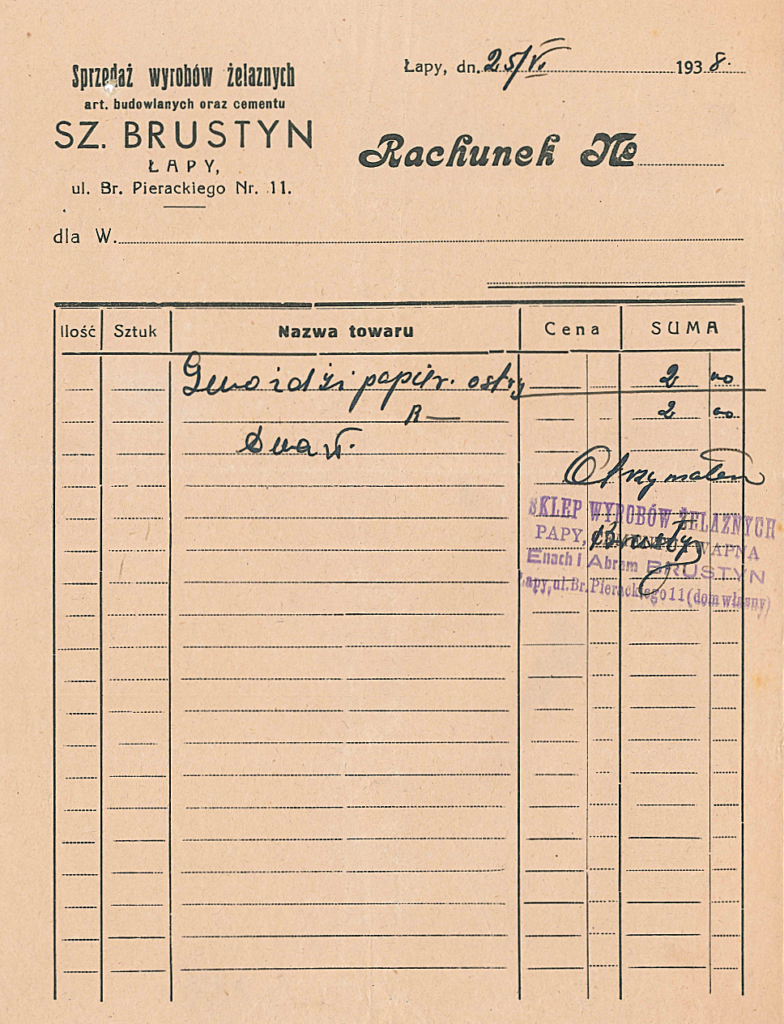 Sprzedaż wyrobów żelaznych
art. budowlanych oraz cementu
SZ. BRUSTYN
ŁAPY,
ul. Br. Pierackiego Nr. 11.
Łapy, dn. 25/VI. 1938.
Rachunek №
dla W.
Ilość Sztuk Nazwa towaru Cena SUMA
ostry 2
R— 2
Dwa zł.
Otrzymałem
SKLEP WYROBÓW ŻELAZNYCH
PAPY, WAPNA
Enach i Abram BRUSTYN
Łapy, ul. Br. Pierackiego 11 (dom własny)